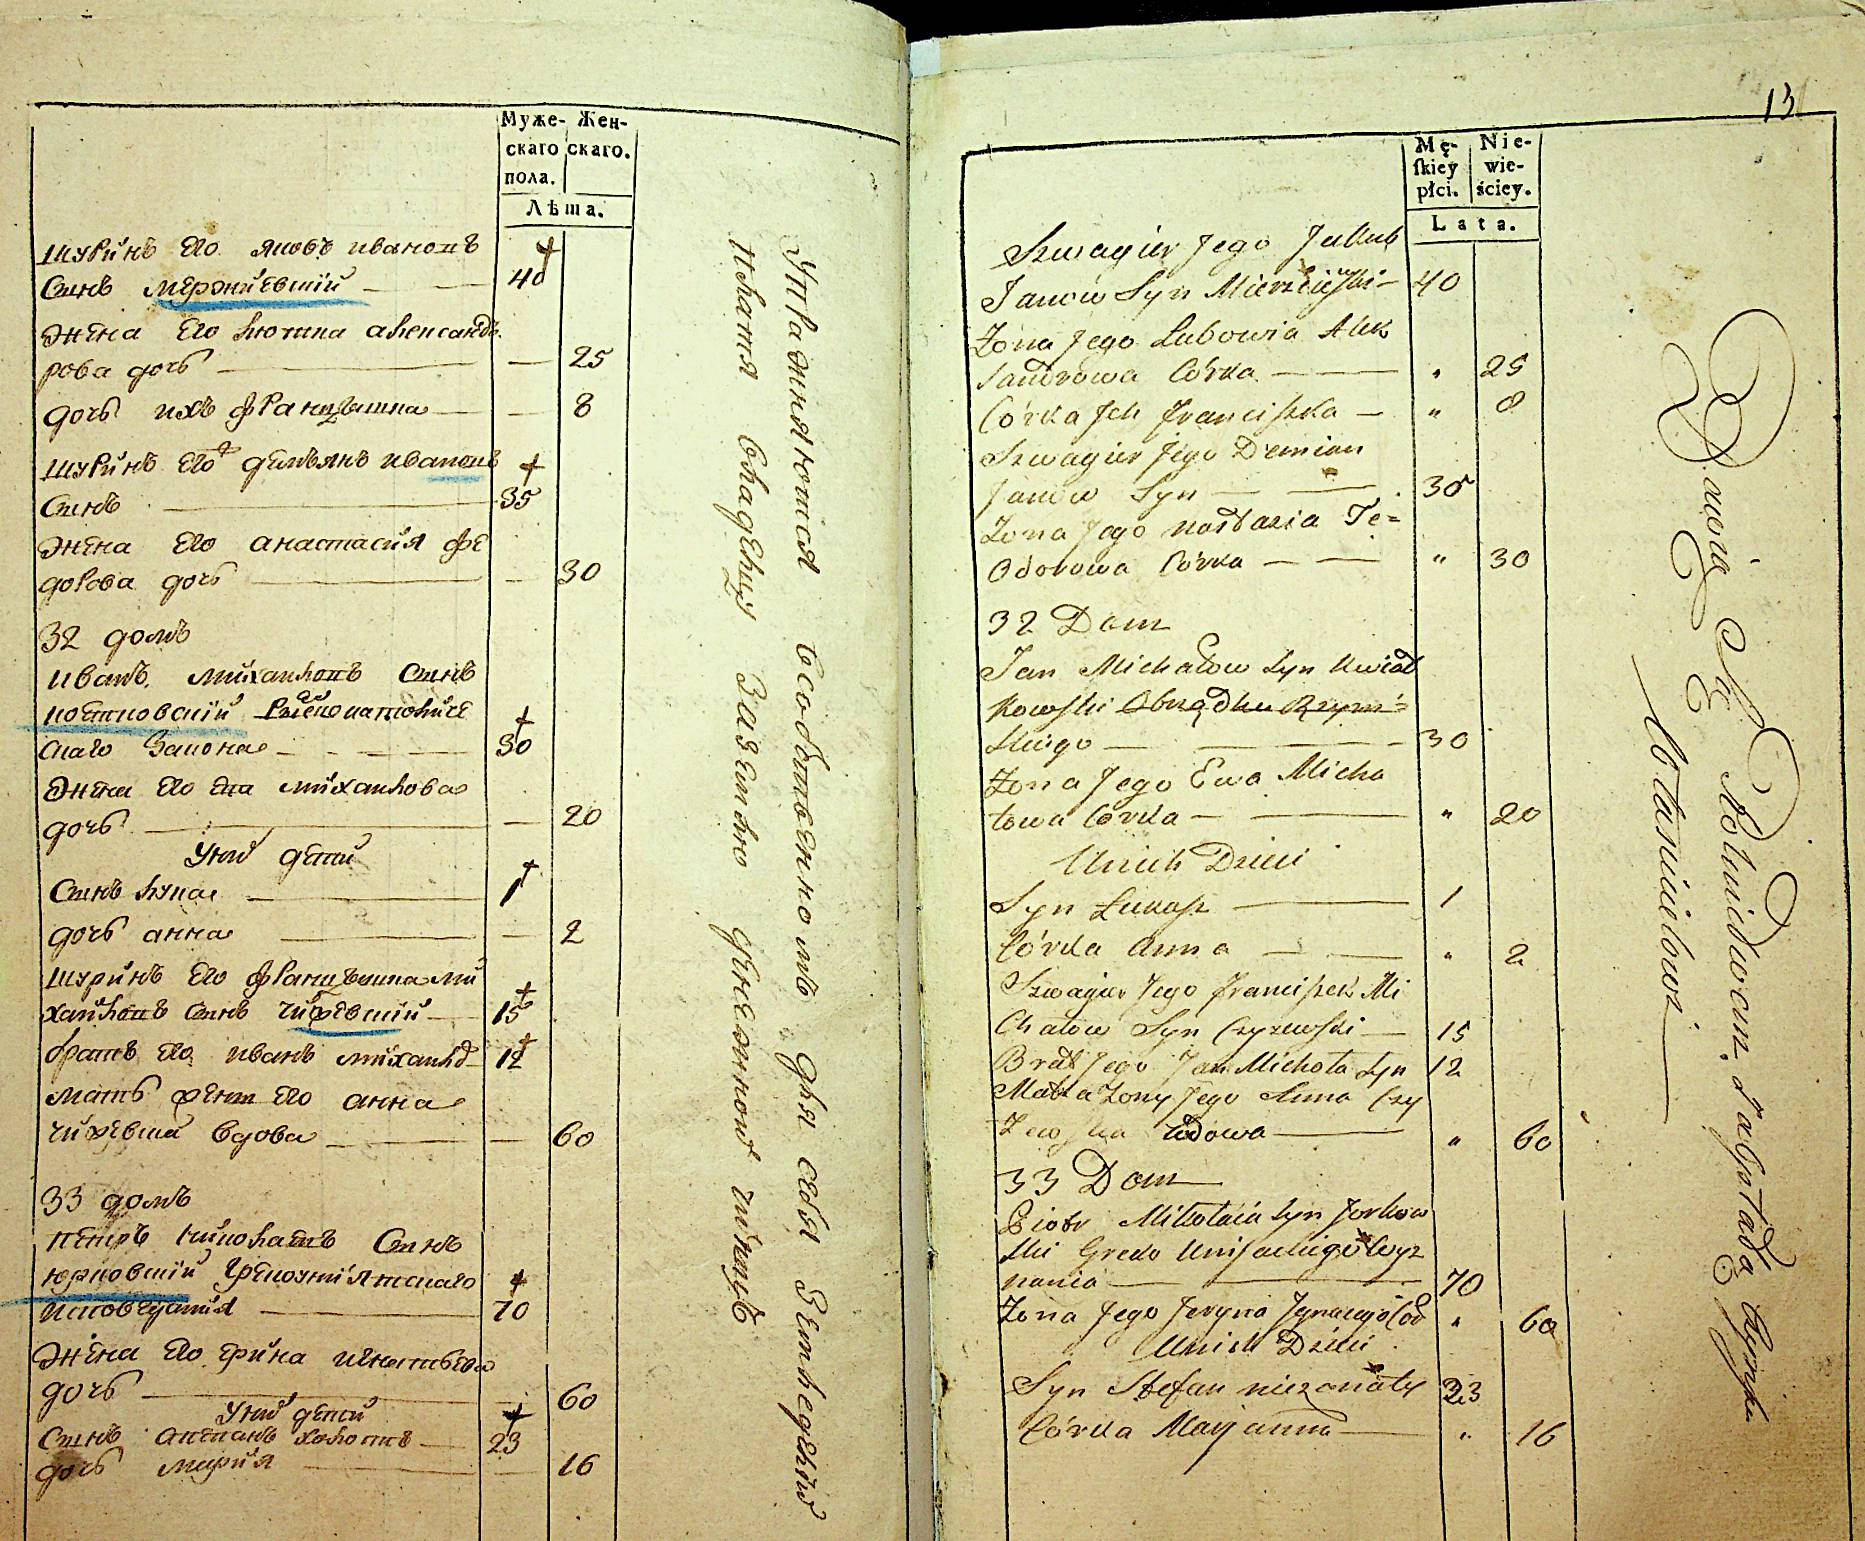 Муже-
скаго
пола.
Жен-
скаго.
Лѣта.
шуринъ его яковъ ивановъ
сынъ мерзлиевскій — 40
жена его любина александ-
рова дочь — 25
дочь ихъ францышка — 8
шуринъ его демьянъ ивановъ
сынъ — 35
жена его анастасия фе
дорова дочь — 30
32 домъ
иванъ михайловъ сынъ
скаго закона — 30
жена его ева михайлова
дочь — 20
у них дети
сынъ лука — 1
дочь анна — 2
шуринъ его францышка ми
хайловъ сынъ чижевский — 15
братъ его иванъ михайло — 12
мать жены его анна
чижевска вдова — 60
33 домъ
петръ николаевъ сынъ
юрковский грекоуниятскаго
исповедания — 70
жена его ерина игнатьева
дочь — 60
у них дети
сынъ степанъ холостъ — 23
дочь мария — 16
Упражняются собственно для себя земледелием
платя владельцу за землю денежной чиншъ
13
Mę-
ſkiey
płci.
Nie-
wie-
ściey.
Lata.
Szwagier Jego Jakub
Janow Syn — 40
Żona Jego Lubowia Alek
sandrowa Córka — „ 25
Córka Ich Franciszka — „ 8
Szwagier Jego Demian
Janow Syn — 35
Żona Jego Nastazia Te=
odorowa Córka — „ 30
32 Dom
Jan Michałow Syn Kwiat
kowski Obrządku Rzym=
skiego — 30
Żona Jego Ewa Micha
łowa Córka — „ 20
U nich Dzieci
Syn Łukasz — 1
Córka Anna — „ 2
Szwagier Jego Franciszek Mi
chałow Syn Czyzewski — 15
Brat Jego Jan Michała Syn 12
Matka Żony Jego Anna Czy
zewska wdowa — „ 60
33 Dom
Piotr Mikołaia Syn Jorkow
ski Greko Unijackiego Wyz
nania — 70
Żona Jego Jeryna Jgnacego Cor „ 60
U nich Dzieci
Syn Stefan niezonaty 23
Córka Maryanna — „ 16
Bawią się Rolnictwem, Zapłatą Czynszu
Właścicielowi —